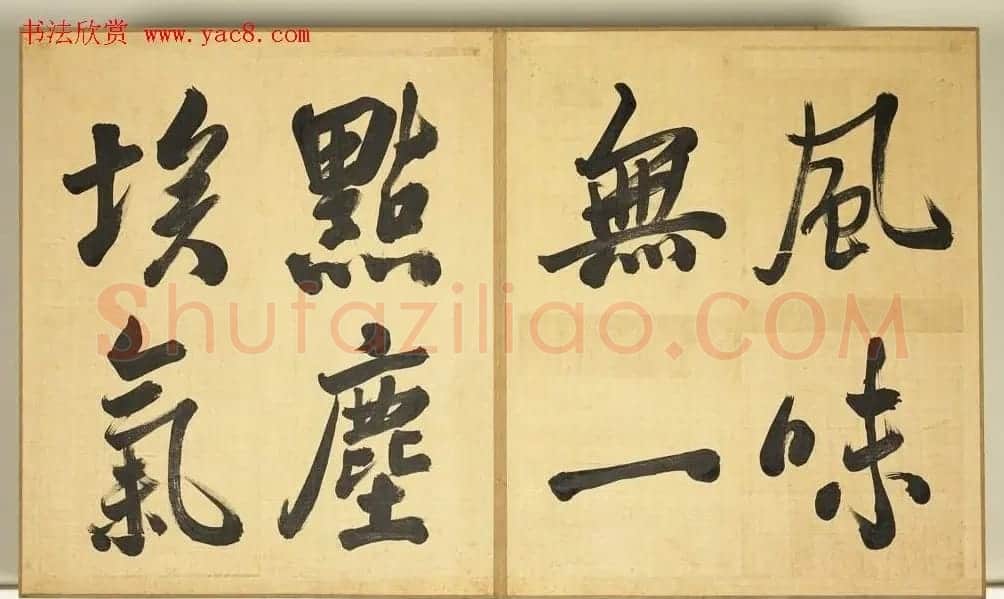 书法欣赏 www.yac8.com
風味
無一
點塵
埃氣
Shufaziliao.COM